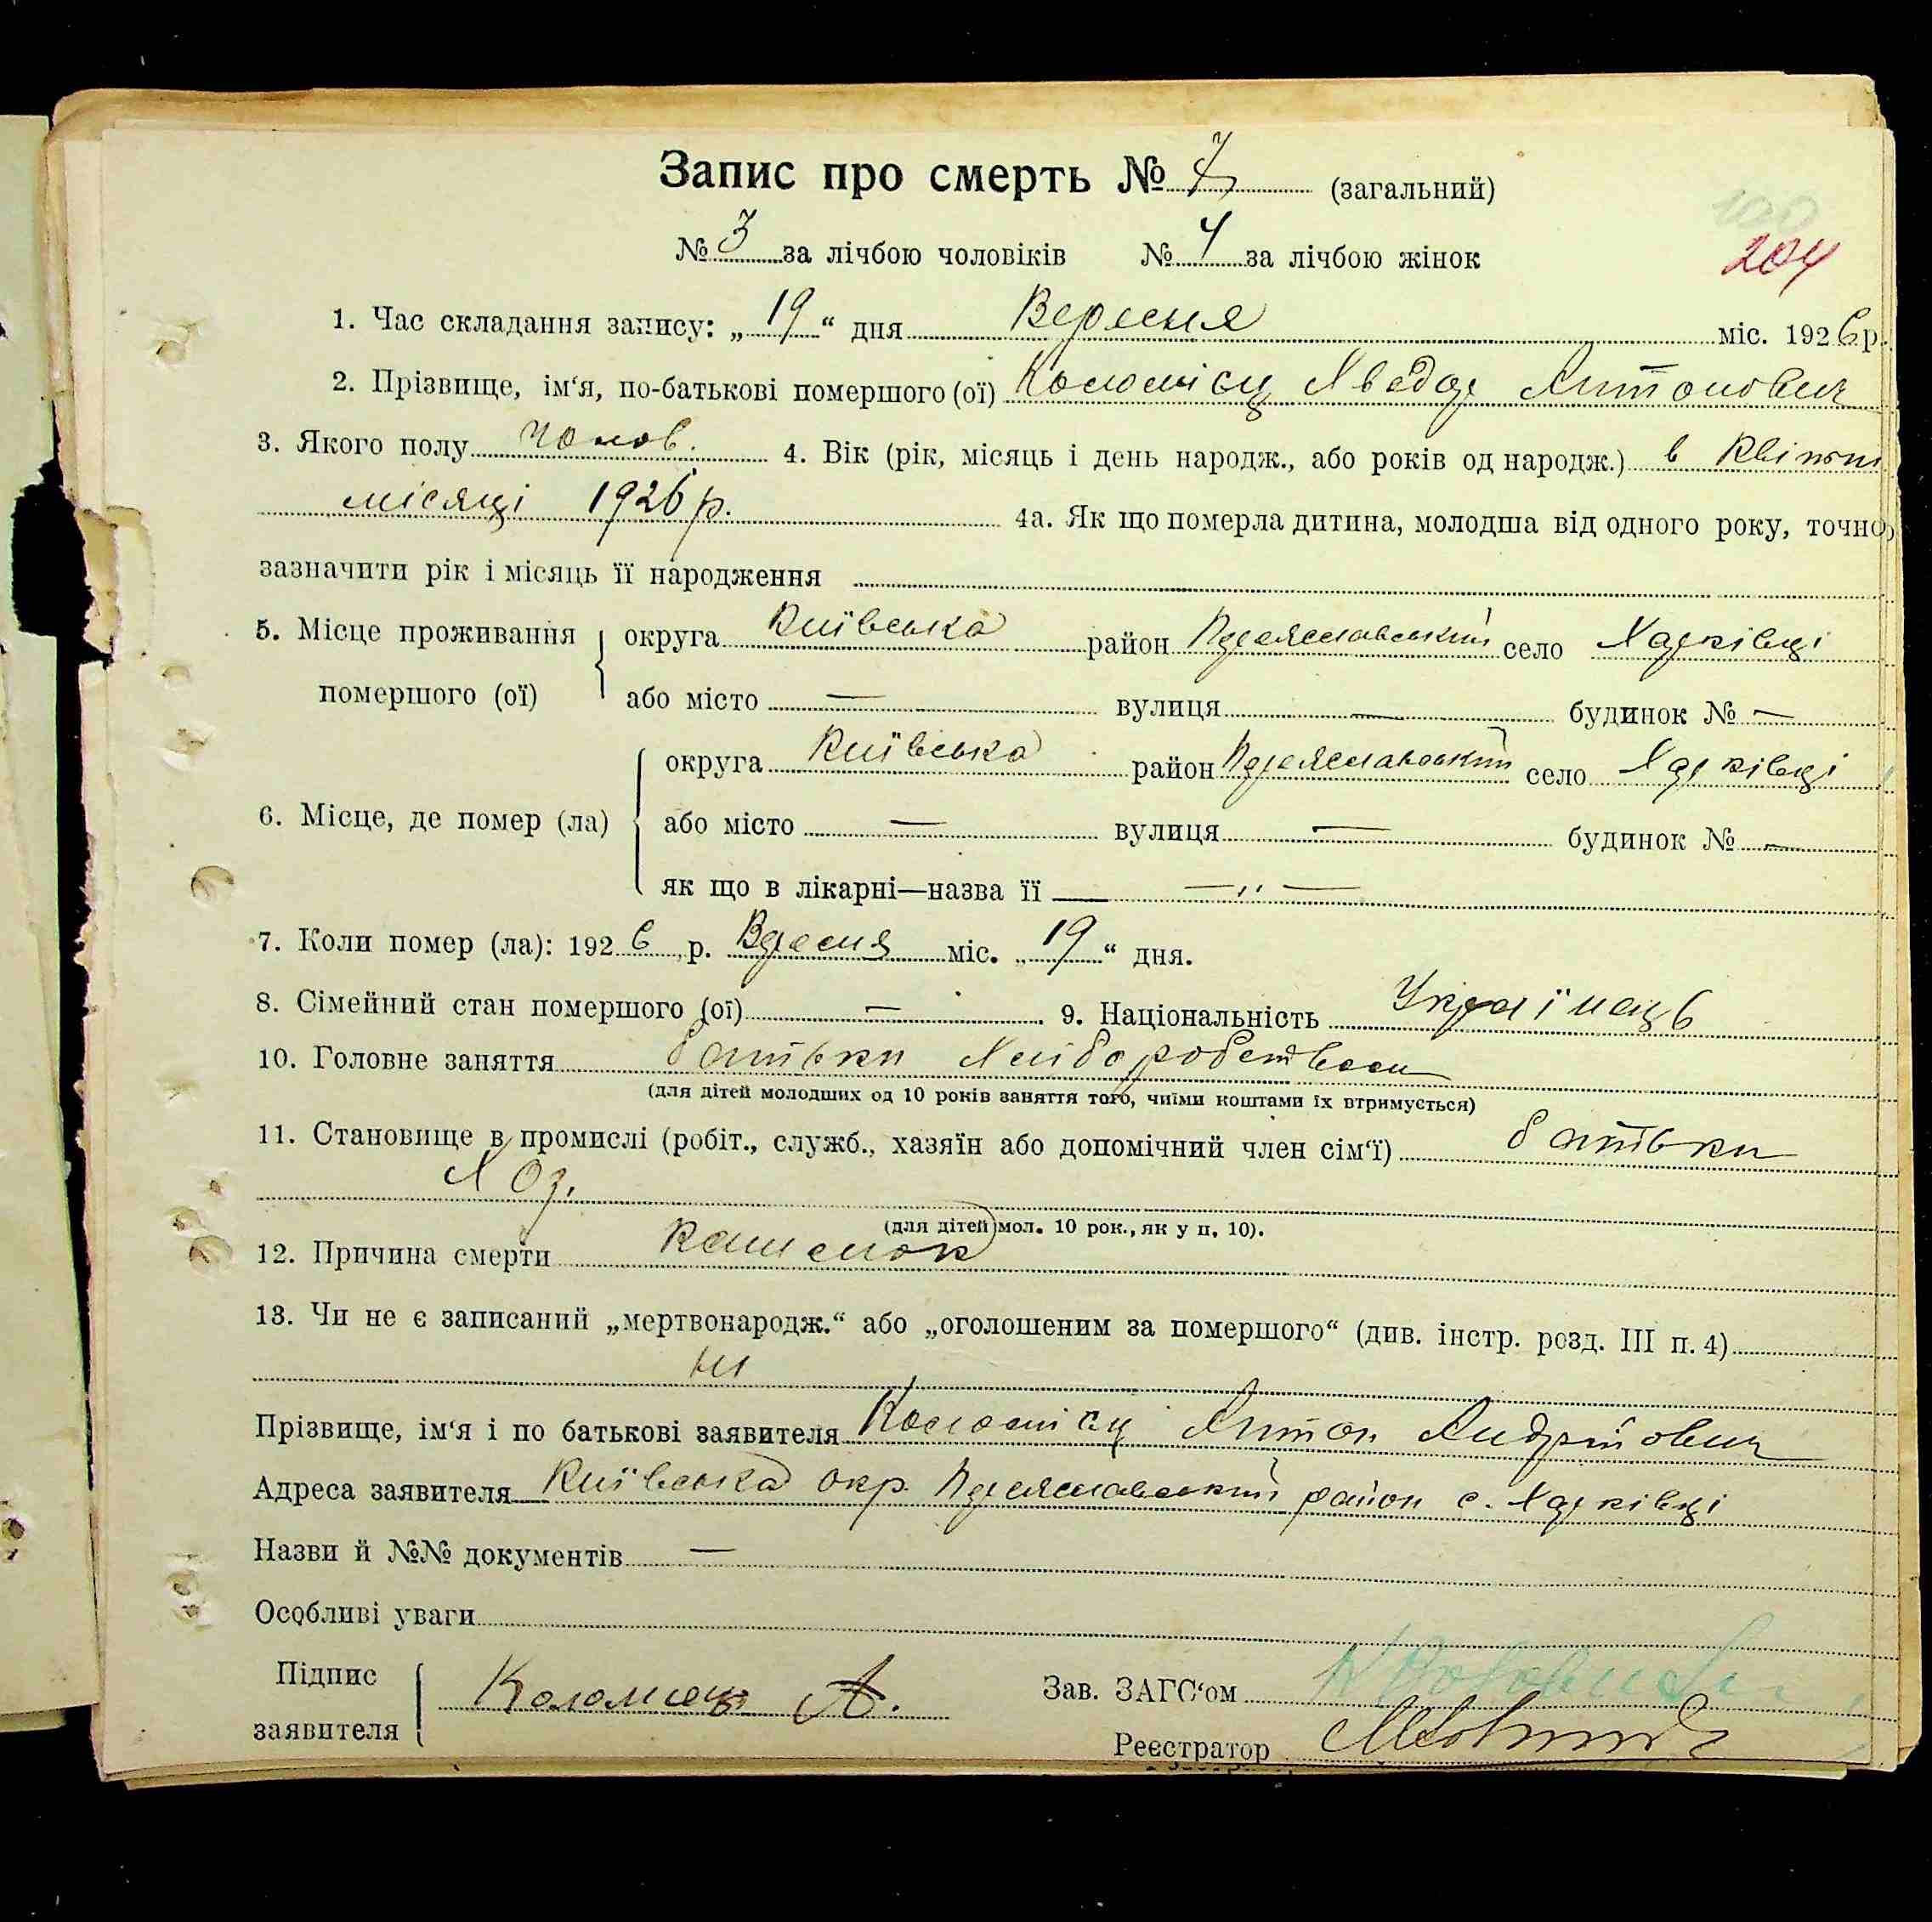 Запис про смерть № 7 (загальний)
100
№ 3 за лічбою чоловіків № 4 за лічбою жінок
204
1. Час складання запису: „19“ дня Вересня міс. 1926 р.
2. Прізвище, ім‘я, по-батькові помершого (ої) Коломієць Антонович
3. Якого полу Чолов. 4. Вік (рік, місяць і день народж., або років од народж.) в Квітні
місяці 1926 р. 4а. Як що померла дитина, молодша від одного року, точно
зазначити рік і місяць її народження
5. Місце проживання округа Київська район Переяславський село Харківці
помершого (ої) або місто — вулиця — будинок № —
округа Київська район Переяславський село Харківці
6. Місце, де помер (ла) або місто — вулиця — будинок № —
як що в лікарні—назва її — „ —
7. Коли помер (ла): 1926 р. Вересня міс. „19“ дня.
8. Сімейний стан помершого (ої) — 9. Національність Українець
10. Головне заняття батьки Хліборобством
(для дітей молодших од 10 років заняття того, чиїми коштами їх втримується)
11. Становище в промислі (робіт., служб., хазяїн або допомічний член сім‘ї) батьки
Хоз.
(для дітей мол. 10 рок., як у п. 10).
12. Причина смерти Кашелюк
13. Чи не є записаний „мертвонародж.“ або „оголошеним за помершого“ (див. інстр. розд. III п. 4)
ні
Прізвище, ім‘я і по батькові заявителя Коломієць Антон Андрійович
Адреса заявителя Київська окр. Переяславський район с. Харківці
Назви й №№ документів —
Особливі уваги
Підпис
заявителя Коломієць А. Зав. ЗАГС‘ом
Реєстратор